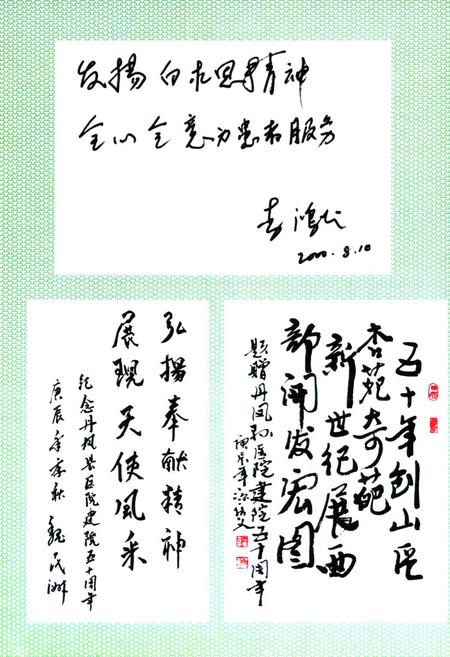 发扬白求恩精神
全心全意为患者服务
2000.8.10
弘扬奉献精神
展现天使风采
纪念丹凤县医院建院五十周年
庚辰年季秋 魏民洲
五十年创山区
杏苑奇葩
新世纪展西
部开发宏图
题赠丹凤县医院建院五十周年
庚辰年